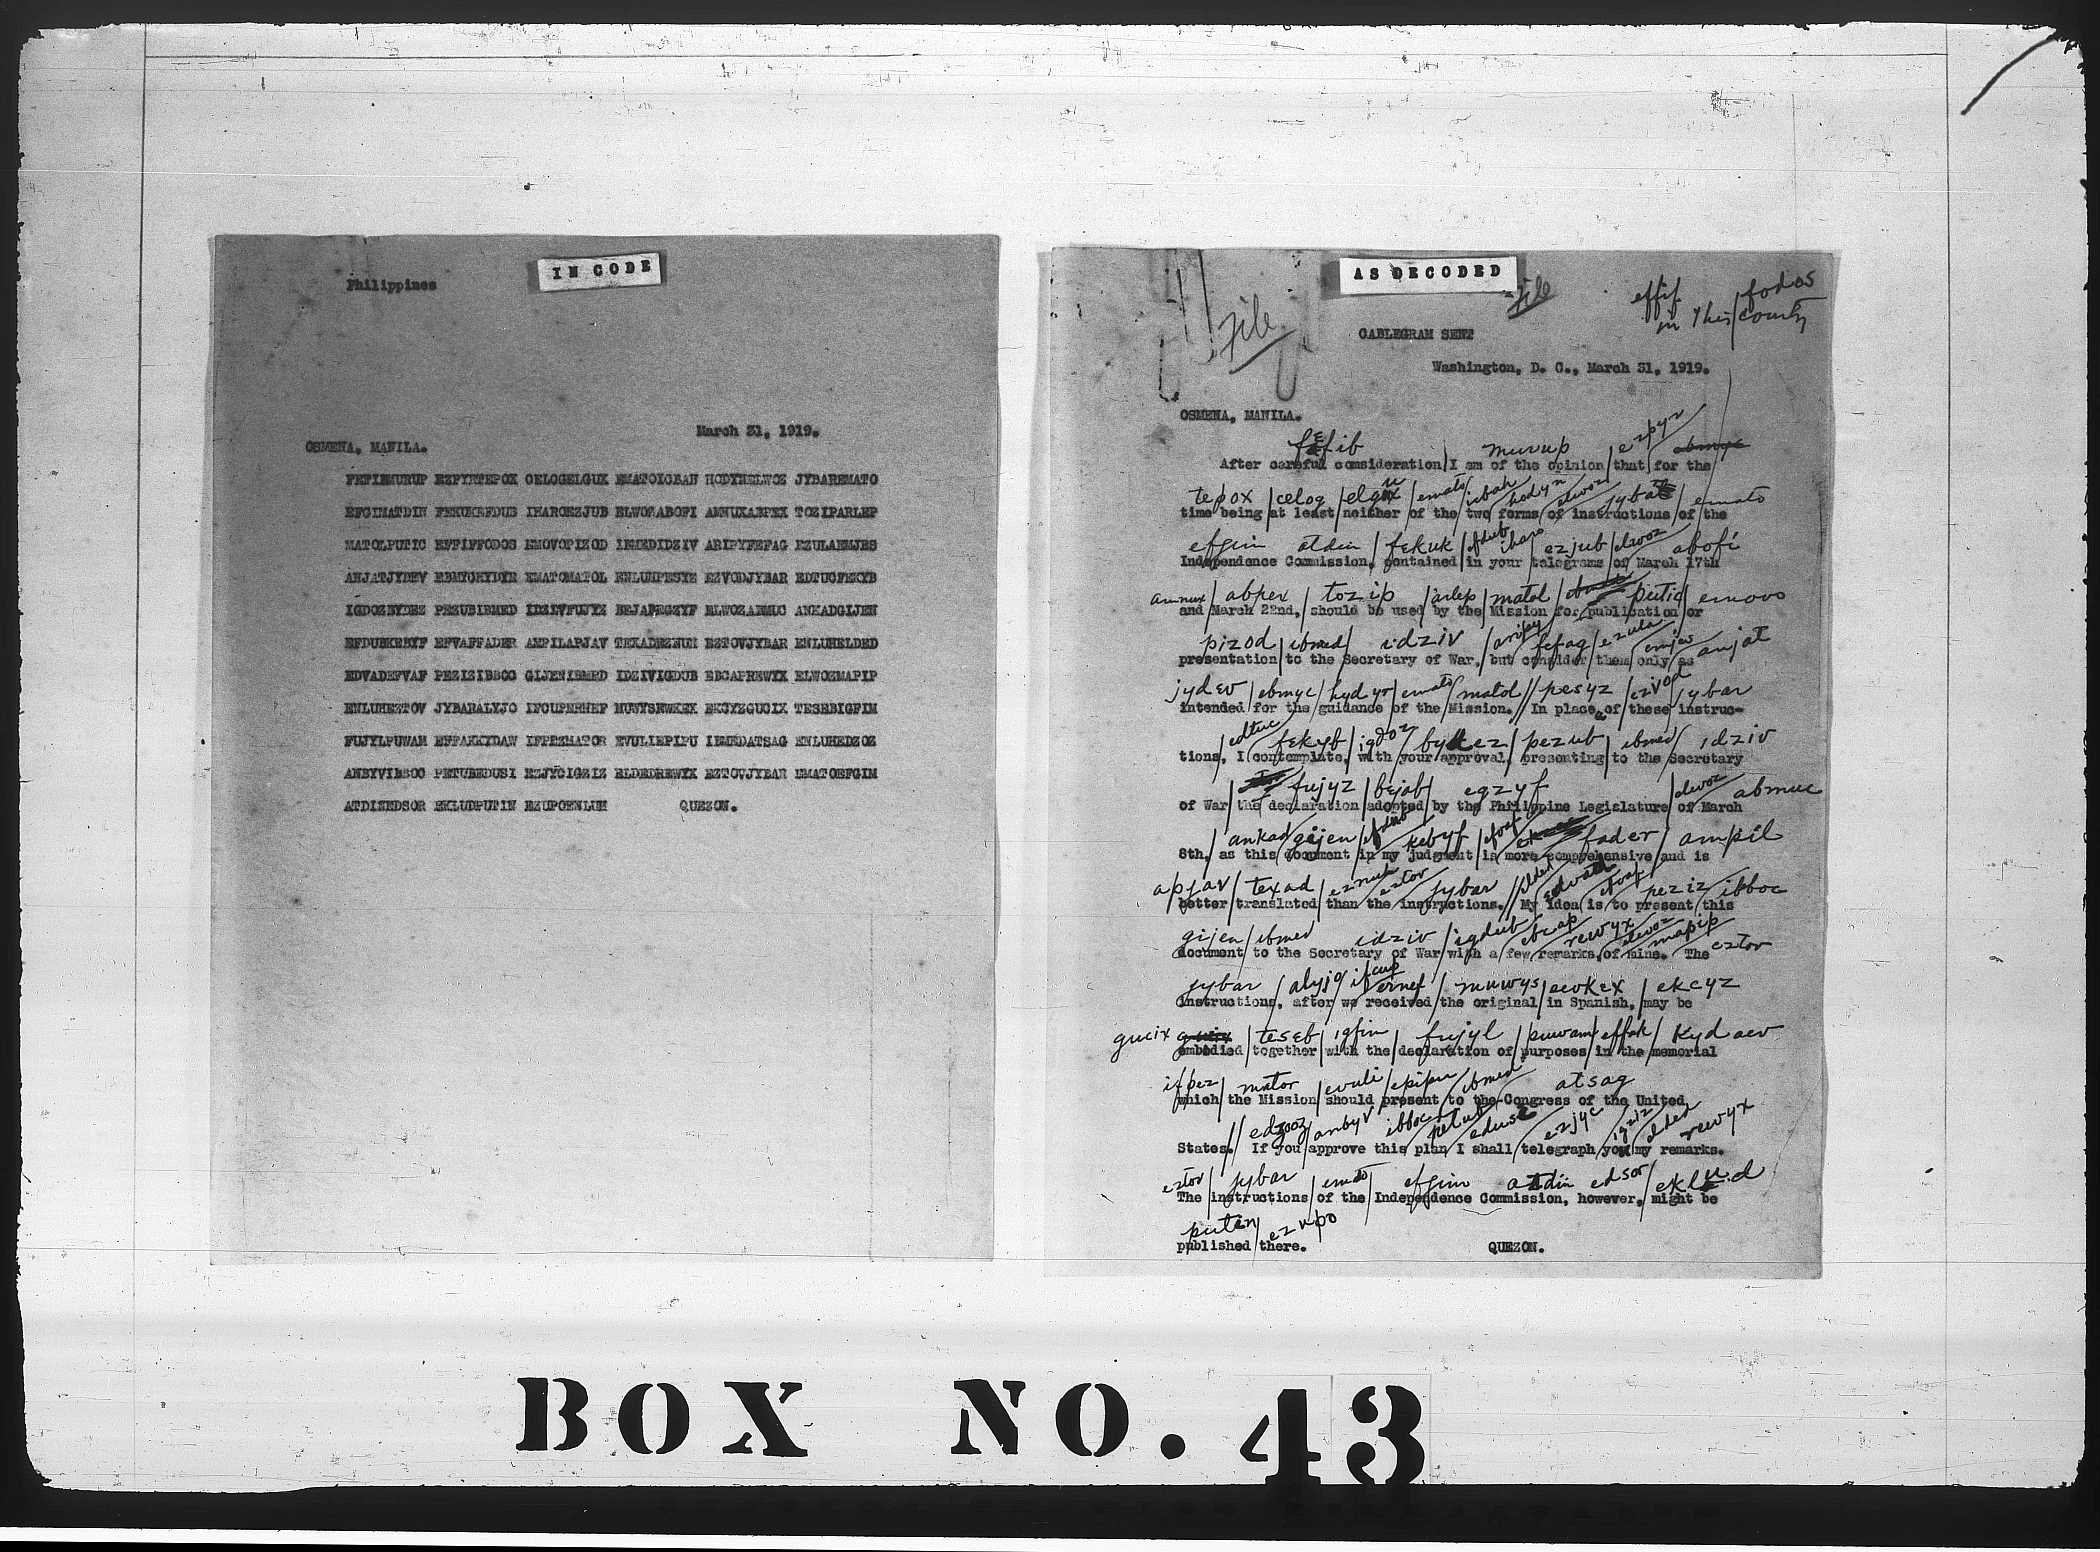 IN CODE
Philippines
March 31, 1919.
OSMENA, MANILA.
FEFIBMURUP EZPYRTEPOX CELOGELGUK EMATOICBAH HODYNELWOZ JYBAREMATO
EFGIMATDIN FEKUKEFDUB IHAROEZJUB ELWOZABOFI AMNUXABPEX TOZIPARLEP
MATOLPUTIC EFFIFFODOS EMOVOPIZOD IBMEDIDZIV ARIPYFEFAG EZULAEMJES
ANJATJYDEV EBMYCHYDYR EMATOMATOL ENLUHPESYZ EZVODJYBAR EDTUCFEKYB
PEZUBIBMED IDZIVFUJYZ BEJABEGZYF ELWOZABMUC ANKADGIJEN
EFDUBKEBYF EFVAFFADER AMPILAPJAV TEXADEZNUH EZTOVJYBAR ENLUHELDED
EDVADEFVAF PEZIZIBBOC GIJENIBMED IDZIVIGDUB EBCAPREWYX ELWOZMAPIP
ENLUHEZTOV JYBARALYJO IFCUPERNEF MUWYSEWKEX EKCYZGUCIX TESEBIGFIM
FUJYLPUWAM EFFAKKYDAW IFPEZMATOR EVULIEPIPU IBMEDATSAG ENLUHEDZOZ
ANBYVIBBOC PETUBEDUSI EZJYCIGZIZ ELDEDREWYX EZTOVJYBAR EMATOEFGIM
ATDINEDSOR EKLUDPUTIN EZUPOENLUH QUEZON.
AS DECODED
File
File
effif fodos
in this/country
CABLEGRAM SENT
Washington, D. C., March 31, 1919.
OSMENA, MANILA.
fefib murup ezpyr
After careful consideration I am of the opinion that for the
tepox celog elguk emato icbah hodyn elwoz jybar emato
time being at least neither of the two forms of instructions of the
efgim atdin fekuk efdub iharo ezjub elwoz abofi
Independence Commission, contained in your telegrams of March 17th
amnux abpex tozip arlep matol putic emovo
and March 22nd, should be used by the Mission for publication or
pizod ibmed idziv aripy fefag ezula emjes anjat
presentation to the Secretary of War, but consider them only as
jydev ebmyc hydyr emato matol pesyz ezvod jybar
intended for the guidance of the Mission. In place of these instruc-
edtuc fekyb igdoz pezub ibmed idziv
tions, I contemplate, with your approval, presenting to the Secretary
fujyz bejab egzyf elwoz abmuc
of War the declaration adopted by the Philippine Legislature of March
ankad gijen efdub kebyf efvaf fader ampil
8th, as this document in my judgment is more comprehensive and is
apjav texad eznuh eztov jybar elded edvad efvaf peziz ibboc
better translated than the instructions. My idea is to present this
gijen ibmed idziv igdub ebcap rewyx elwoz mapip eztov
document to the Secretary of War with a few remarks of mine. The
jybar alyjo ifcup ernef muwys ewkex ekcyz
instructions, after we received the original in Spanish, may be
gucix teseb igfim fujyl puwam effak kydaw
embodied together with the declaration of purposes in the memorial
ifpez mator evuli epipu ibmed atsag
which the Mission should present to the Congress of the United
edzoz anbyv ibboc petub edusi ezjyc igziz elded rewyx
States. If you approve this plan I shall telegraph you my remarks.
eztov jybar emato efgim atdin edsor eklud
The instructions of the Independence Commission, however, might be
putin ezupo
published there. QUEZON.
BOX NO. 43